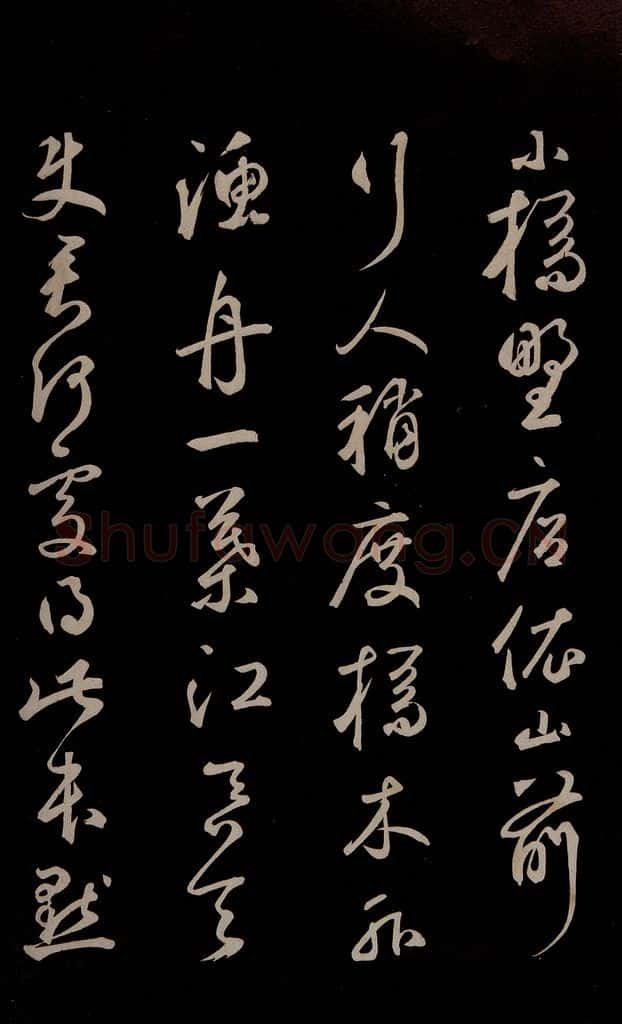 小橋野店依山前
行人稍度橋木外
漁舟一葉江吞天
使君何處得此本點
Shufawang.CN